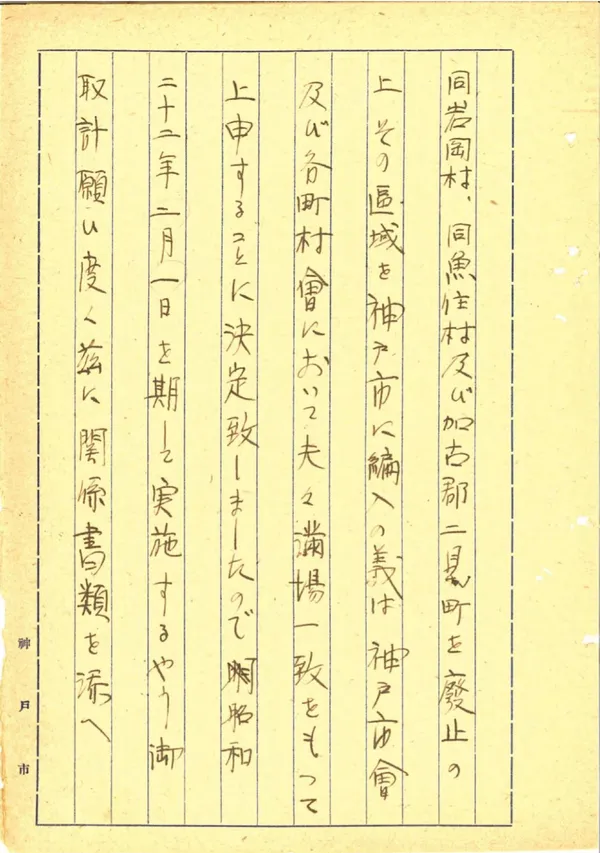 同岩岡村、同魚住村及び加古郡二見町を廢止の
上その區域を神戸市に編入の義は神戸市會
及び各町村會において夫々満場一致をもつて
上申することに決定致しましたので明昭和
二十二年二月一日を期して実施するやう御
取計願ひ度く茲に関係書類を添へ
神戸市